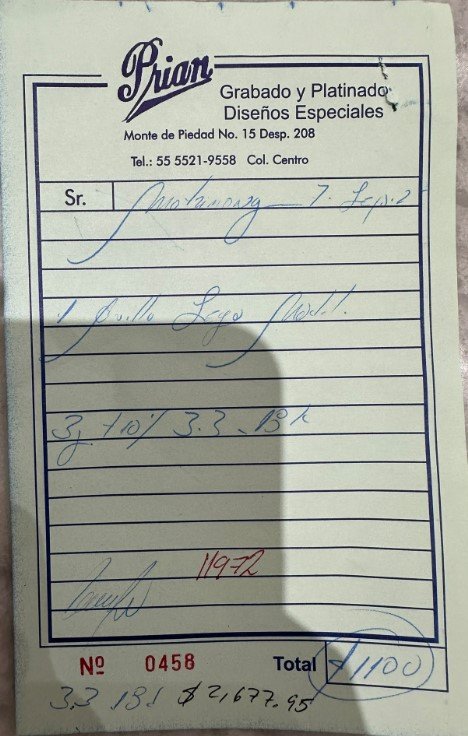 Prian
Grabado y Platinado
Diseños Especiales
Monte de Piedad No. 15 Desp. 208
Tel.: 55 5521-9558 Col. Centro
Sr.
1
3g +10% 3.3 - 18 k
11972
Nº 0458 Total $1100
3.3 18k $2,677.95